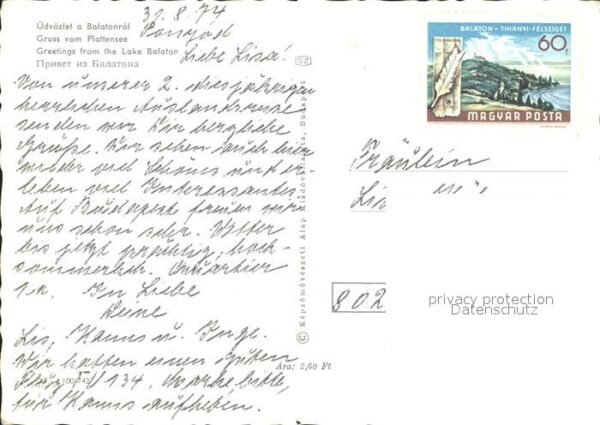 31.8.74
Fonyod
Üdvözlet a Balatonról
Gruss vom Plattensee
Greetings from the Lake Balaton
Привет из Балатона
Liebe Lisa!
Von unserer 2. diesjährigen
herrlichen Auslandsreise
senden wir Dir herzliche
Grüße. Wir sehen auch hier
wieder viel Schönes und er
leben viel Interessantes.
Auf Budapest freuen wir
uns schon sehr. Wetter
bis jetzt prächtig, hoch-
sommerlich. Quartier
1a. In Liebe
Deine
Lis, Hanns u. Inge.
Wir hatten einen guten
Flug 134. Marke bitte,
für Hanns aufheben.
Ára: 2,60 Ft
© Képzőművészeti Alap Kiadóvállalata, Budapest
BALATON - TIHANYI-FÉLSZIGET
60f
MAGYAR POSTA
Fräulein
Lis
802
privacy protection
Datenschutz